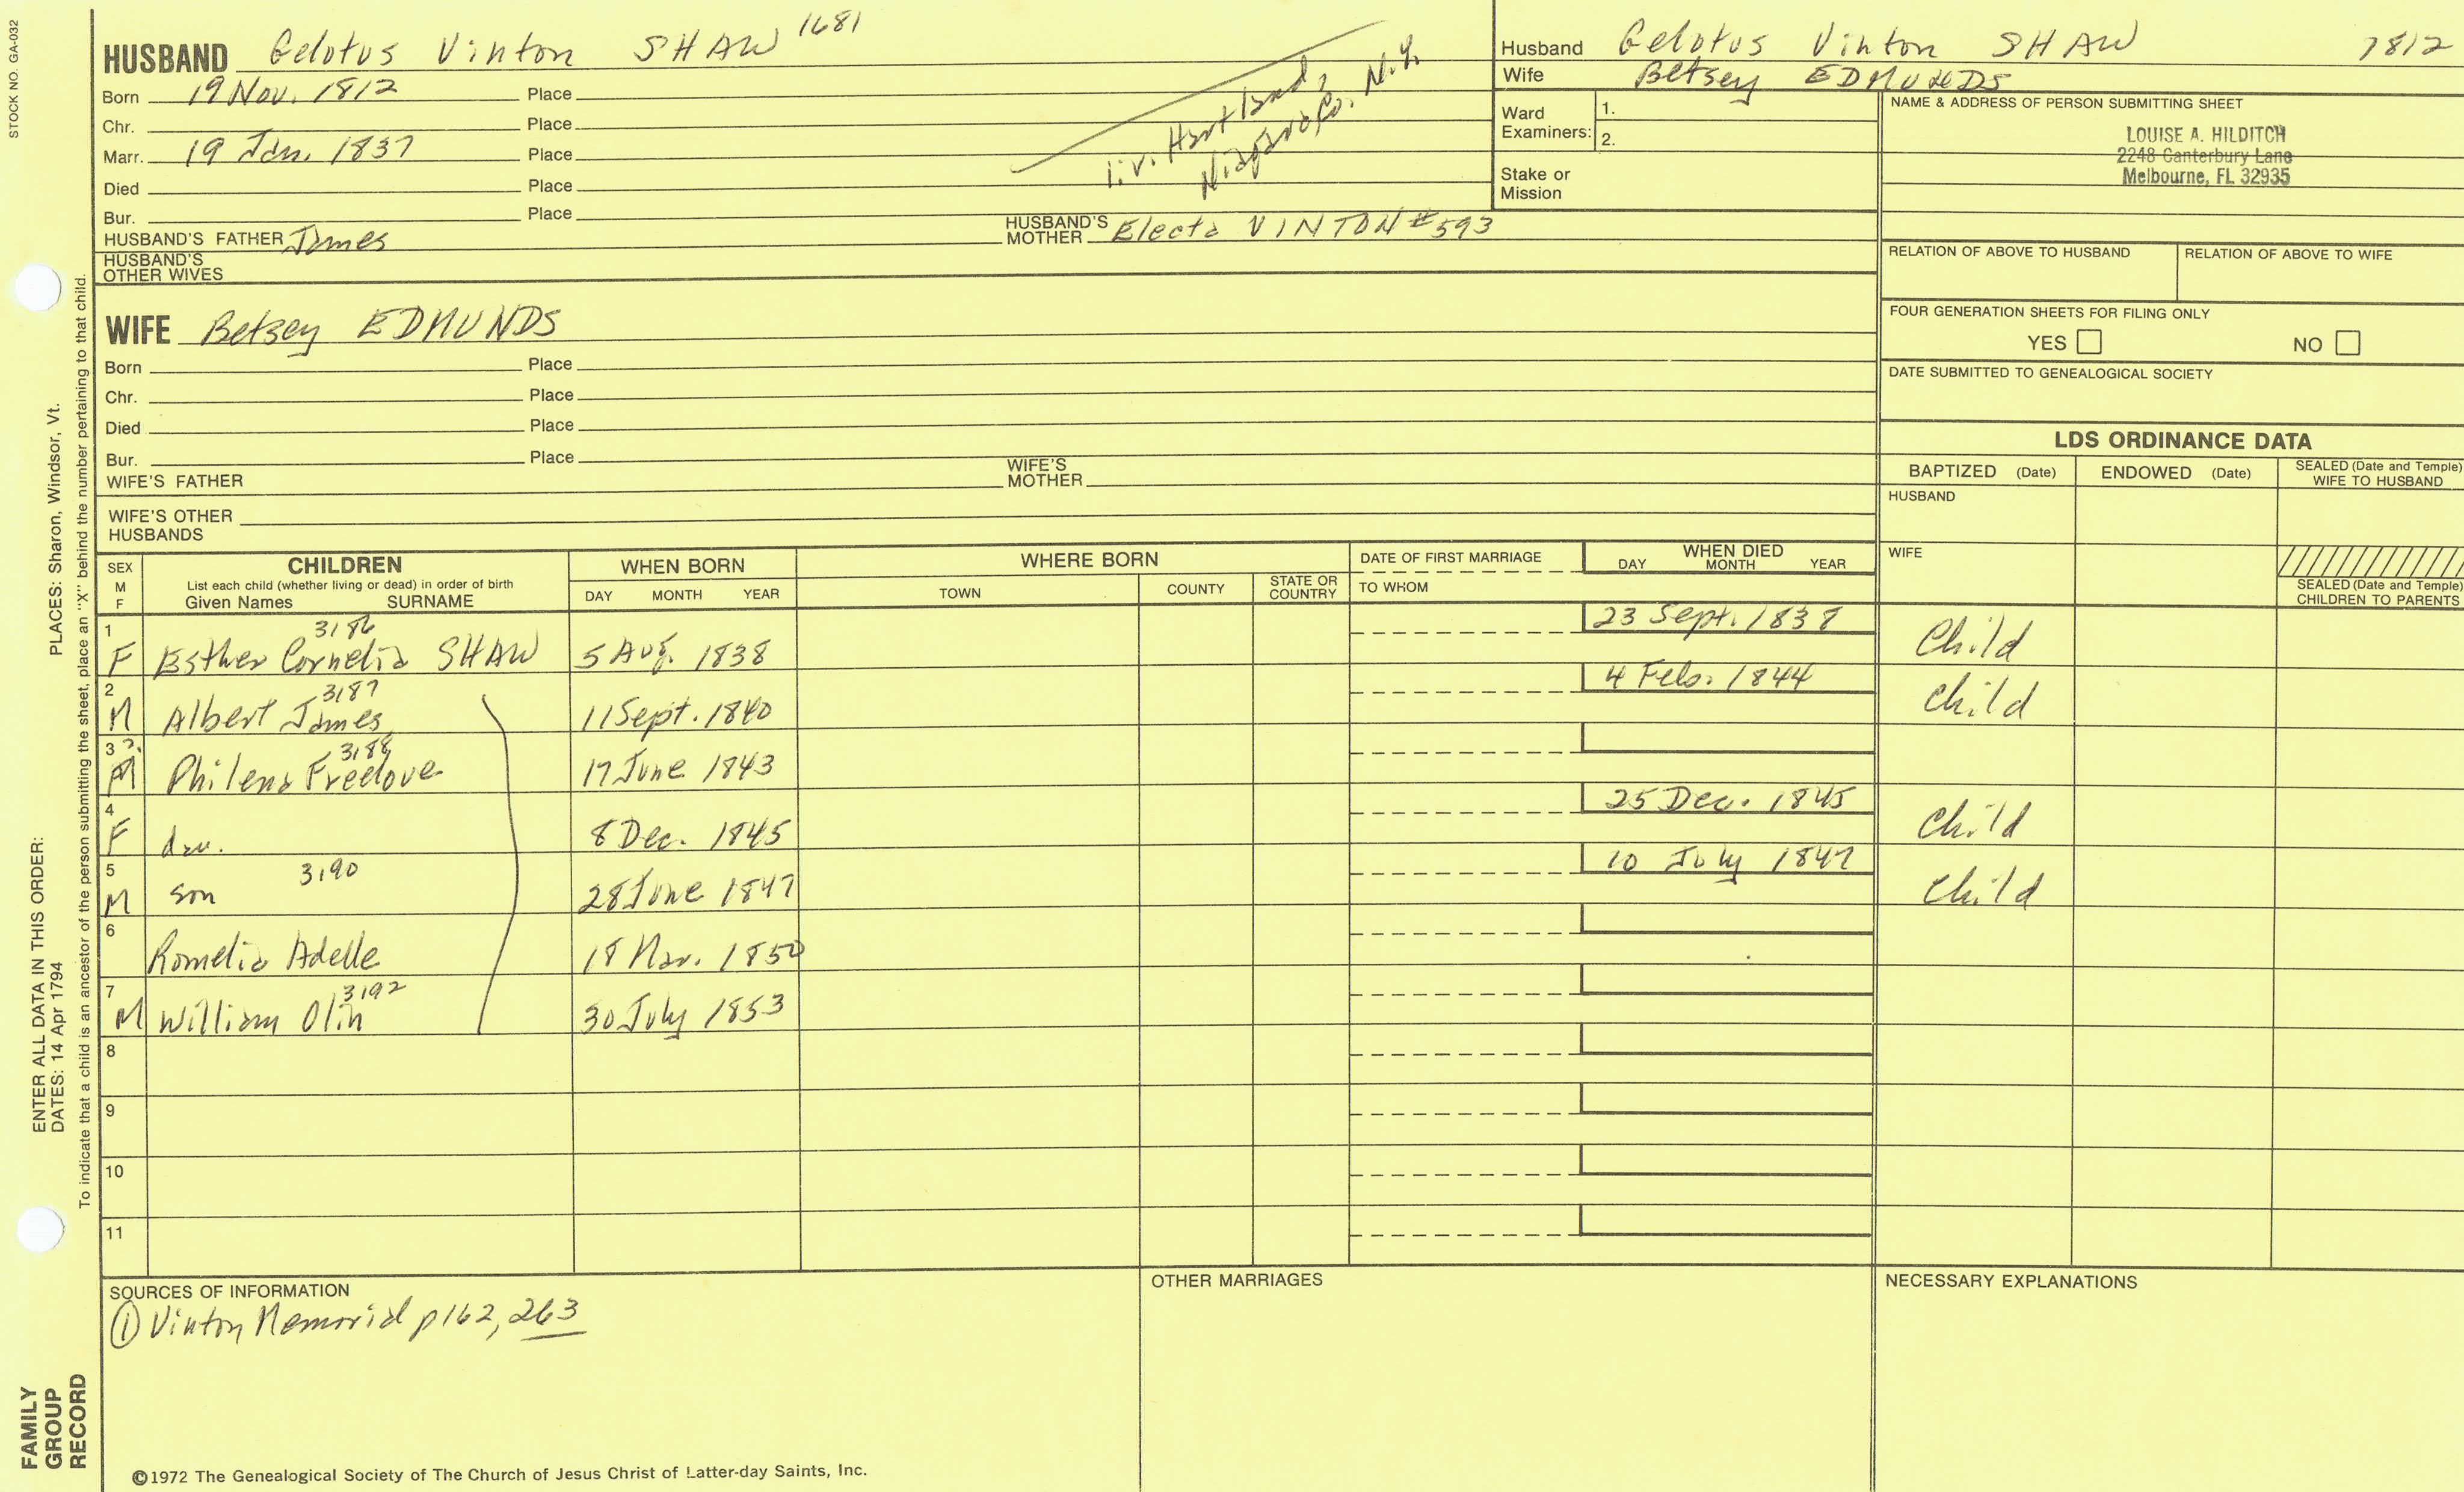 STOCK NO. GA-032
HUSBAND Gelotus Vinton SHAW 1681
Born 19 Nov. 1812 Place
Chr. Place
Marr. 19 Jan. 1837 Place
Died Place
Bur. Place
liv. Hartland,
Niagara Co. N.Y.
HUSBAND'S FATHER James
HUSBAND'S MOTHER Electa VINTON #593
HUSBAND'S OTHER WIVES
WIFE Betsey EDMUNDS
Born Place
Chr. Place
Died Place
Bur. Place
WIFE'S FATHER
WIFE'S MOTHER
WIFE'S OTHER HUSBANDS
Husband Gelotus Vinton SHAW 1812
Wife Betsey EDMUNDS
Ward Examiners: 1.
2.
Stake or Mission
NAME & ADDRESS OF PERSON SUBMITTING SHEET
LOUISE A. HILDITCH
2248 Canterbury Lane
Melbourne, FL 32935
RELATION OF ABOVE TO HUSBAND
RELATION OF ABOVE TO WIFE
FOUR GENERATION SHEETS FOR FILING ONLY
YES NO
DATE SUBMITTED TO GENEALOGICAL SOCIETY
LDS ORDINANCE DATA
BAPTIZED (Date) ENDOWED (Date) SEALED (Date and Temple) WIFE TO HUSBAND
HUSBAND
WIFE
SEALED (Date and Temple) CHILDREN TO PARENTS
SEX M F
CHILDREN
List each child (whether living or dead) in order of birth
Given Names SURNAME
WHEN BORN
DAY MONTH YEAR
WHERE BORN
TOWN COUNTY STATE OR COUNTRY
DATE OF FIRST MARRIAGE
TO WHOM
WHEN DIED
DAY MONTH YEAR
1 3186 23 Sept. 1838
F Esther Cornelia SHAW 5 Aug. 1838 Child
2 3187 4 Feb. 1844
M Albert James 11 Sept. 1840 Child
3 ?. 3188
M Philena Freelove 17 June 1843
4 25 Dec. 1845
F dau. 8 Dec. 1845 Child
5 3190 10 July 1847
M son 28 June 1847 Child
6
Romelia Adelle 18 Mar. 1850
7 3192
M William Olin 30 July 1853
8
9
10
11
SOURCES OF INFORMATION
① Vinton Memorial p162, 263
OTHER MARRIAGES
NECESSARY EXPLANATIONS
©1972 The Genealogical Society of The Church of Jesus Christ of Latter-day Saints, Inc.
PLACES: Sharon, Windsor, Vt.
To indicate that a child is an ancestor of the person submitting the sheet, place an "X" behind the number pertaining to that child.
ENTER ALL DATA IN THIS ORDER:
DATES: 14 Apr 1794
FAMILY
GROUP
RECORD